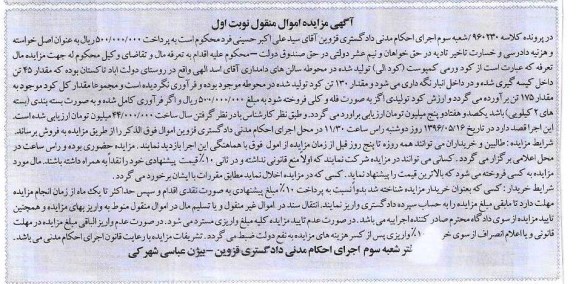 آگهی مزایده اموال منقول نوبت اول
در پرونده کلاسه ۹۶۰۲۳۰ /شعبه سوم اجرای احکام مدنی دادگستری قزوین آقای سید علی اکبر حسینی فرد محکوم است به پرداخت ۵۰۰/۰۰۰/۰۰۰ ریال به عنوان اصل خواسته
و هزینه دادرسی و خسارت تاخیر تادیه در حق خواهان و نیم عشر دولتی در حق صندوق دولت – محکوم علیه اقدام به تعرفه مال و تقاضای وکیل محکوم له جهت مزایده مال
تعرفه که عبارت است از کود ورمی کمپوست (کود آلی) تولید شده در محوطه سالن های دامداری آقای اسد الهی واقع در روستای دولت آباد تاکستان بوده که مقدار ۴۵ تن
داخل کیسه گیری شده و در داخل انبار نگه داری می شود و مقدار ۱۳۰ تن کود تولید شده در محوطه موجود بوده و فرآوری نگردیده است و مجموعا مقدار کل کود موجود به
مقدار ۱۷۵ تن برآورده می گردد و ارزش کود تولیدی اگر به صورت فله و کلی فروخته شود به مبلغ ۵۰۰/۰۰۰/۰۰۰ ریال و اگر فرآوری کامل شده و به صورت بسته بندی (بسته
های ۲ کیلویی) باشد یکصد و هفتاد و پنج میلیون تومان ارزیابی برآورد می گردد. و طبق نظر کارشناس با در نظر گرفتن سال ساخت ۴۴/۰۰۰/۰۰۰ میلیون تومان ارزیابی شده است.
این اجرا قصد دارد در تاریخ ۱۳۹۶/۰۵/۱۶ روز دوشنبه راس ساعت ۱۱/۳۰ در محل اجرای احکام مدنی دادگستری قزوین اموال فوق الذکر را از طریق مزایده به فروش برساند.
شرایط مزایده: طالبین و خریداران می توانند همه روزه تا پنج روز قبل از زمان مزایده از امول فوق با هماهنگی این اجرا بازدید نمایند. مزایده حضوری بوده و راس ساعت در
محل اعلامی برگزار می گردد. کسانی می توانند در مزایده شرکت نمایند که اولاً منع قانونی نداشته و در ثانی ۱۰٪ قیمت پیشنهادی خود را نقدا به همراه داشته باشند. مال مورد
مزایده به کسی فروخته می شود که بالاترین قیمت را پیشنهاد نماید. کسی که در مزایده اخلال نماید مطابق مقررات با ایشان برخورد می گردد.
شرایط خریدار: کسی که بعنوان خریدار مزایده شناخته شد بدواً نسبت به پرداخت ۱۰٪ مبلغ پیشنهادی به صورت نقدی اقدام و سپس حداکثر تا یک ماه از زمان انجام مزایده
مهلت دارد تا مابقی مبلغ مزایده را به حساب سپرده دادگستری واریز نمایند. انتقال سند در اموال غیر منقول و یا تسلیم مال در اموال منقول منوط به واریز بهای مزایده و همچنین
تایید مزایده از سوی دادگاه محترم صادر کننده اجراییه می باشد. در صورت عدم تایید مزایده کلیه مبلغ واریزی مسترد می شود. در صورت عدم واریز الباقی مبلغ مزایده در مهلت
قانونی و یا اعلام انصراف از سوی خر ۱۰٪ واریزی پس از کسر هزینه های مزایده به نفع دولت ضبط می گردد. تشریفات مزایده با رعایت قانون اجرای احکام مدنی می باشد.
تر شعبه سوم اجرای احکام مدنی دادگستری قزوین – بیژن عباسی شهرکی